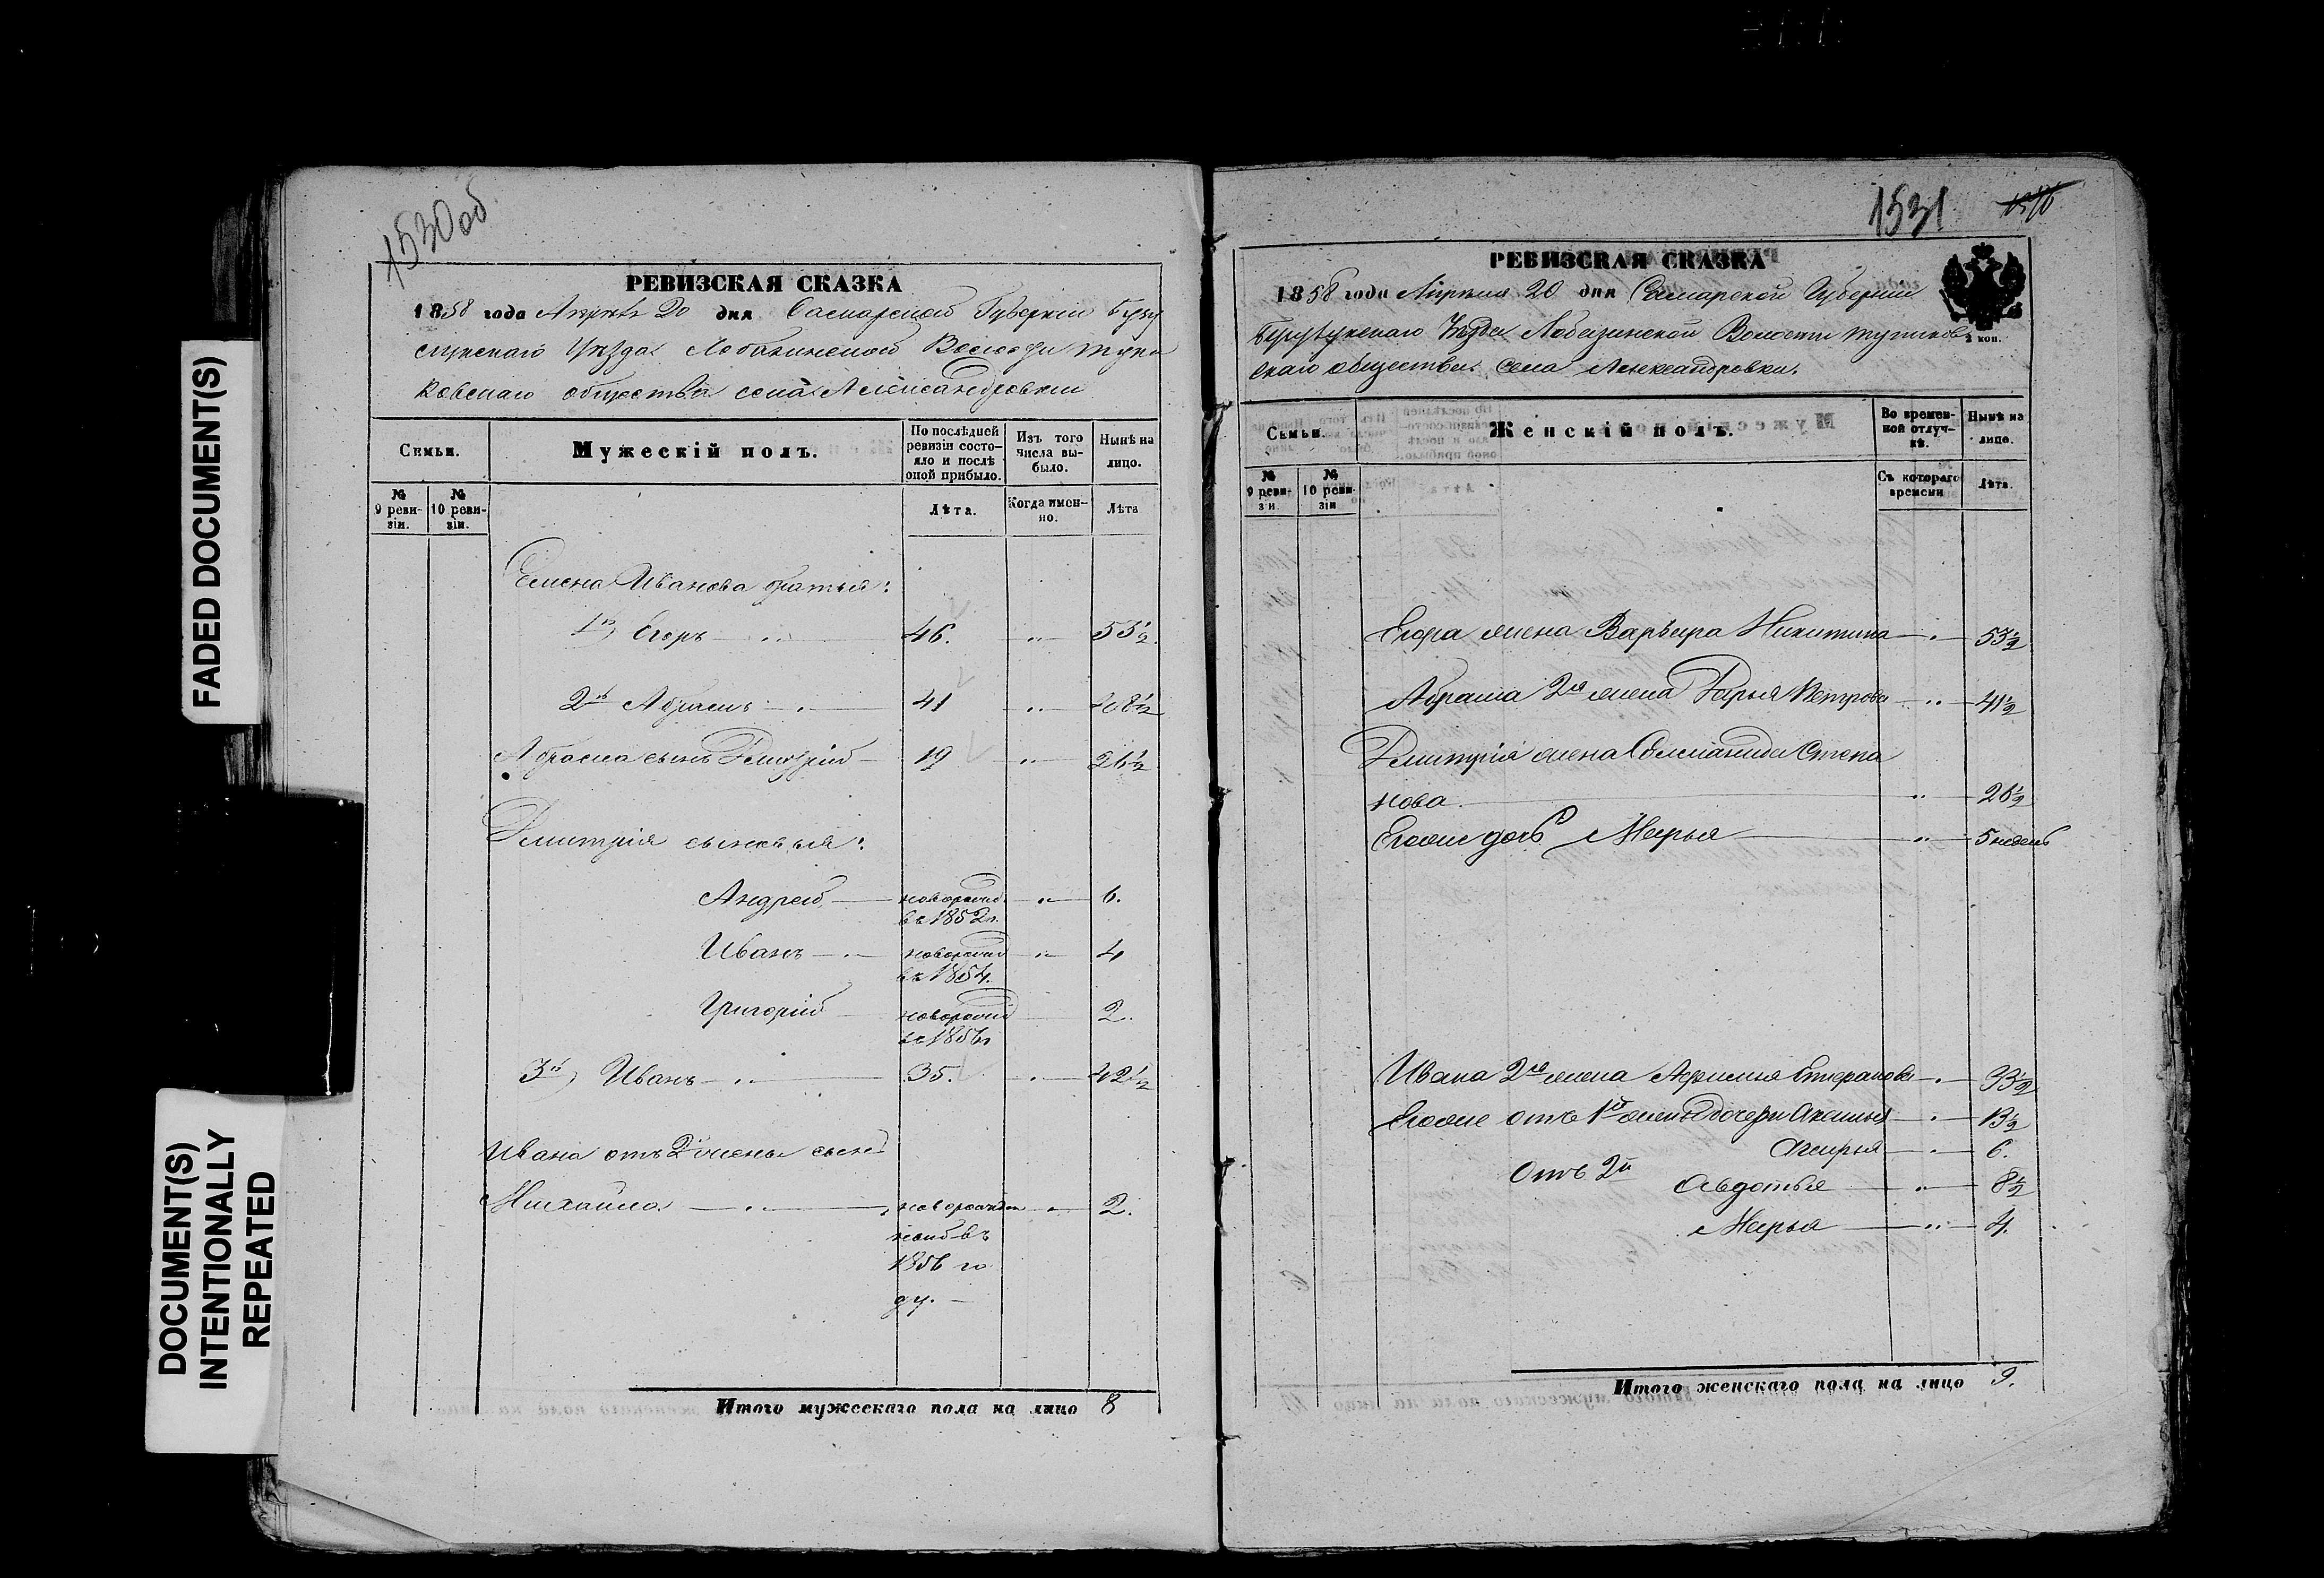 FADED DOCUMENT(S)
DOCUMENT(S)
INTENTIONALLY
REPEATED
1530об
РЕВИЗСКАЯ СКАЗКА
1858 года Апрѣля 20 дня Самарской Губерніи Бузу
лукскаго Уѣзда Лобазинской Волости
ковскаго общества села Александровки
Семьи.
Мужескій полъ.
По послѣдней
ревизіи состо-
яло и послѣ
оной прибыло.
Изъ того
числа вы-
было.
Нынѣ на
лицо.
№
9 реви-
зіи.
№
10 реви-
зіи.
Лѣта.
Когда имен-
но.
Лѣта
Семена Иванова братья:
1й) Егоръ 46. 53½.
2й Абрамъ 41 48½
Абрама сынъ Дмитрій 19 26½
Дмитрія сыновья:
Андрей новорожд. 6.
въ 1852 г.
Иванъ новорожд 4
въ 1854.
Григорій новорожд 2.
въ 1856 г
3й) Иванъ 35. 42½
Ивана отъ 2й жены сынъ
Михайло новорожден 2.
ной въ
1856 го
ду.
Итого мужескаго пола на лицо 8
1531
РЕВИЗСКАЯ СКАЗКА
1858 года Апрѣля 20 дня Самарской Губерніи
Бузулукскаго Уѣзда Лобазинской Волости
2 коп.
скаго общества села Александровки.
Семьи.
Женскій полъ.
Во времен-
ной отлуч-
кѣ.
Нынѣ на
лицо.
№
9 реви-
зіи
№
10 реви-
зіи
Съ котораго
времени
Лѣта.
Егора жена Варвара Никитина 53½
Абрама 2я жена Дарья Петрова 41½
Дмитрія жена Степа
нова 26½
Егоже дочь Марья 5 недель
Ивана 2я жена 33½
Егоже отъ 1й жены дочери 13½
6.
Отъ 2й Авдотья 8½
Марья 4.
Итого женскаго пола на лицо 9.